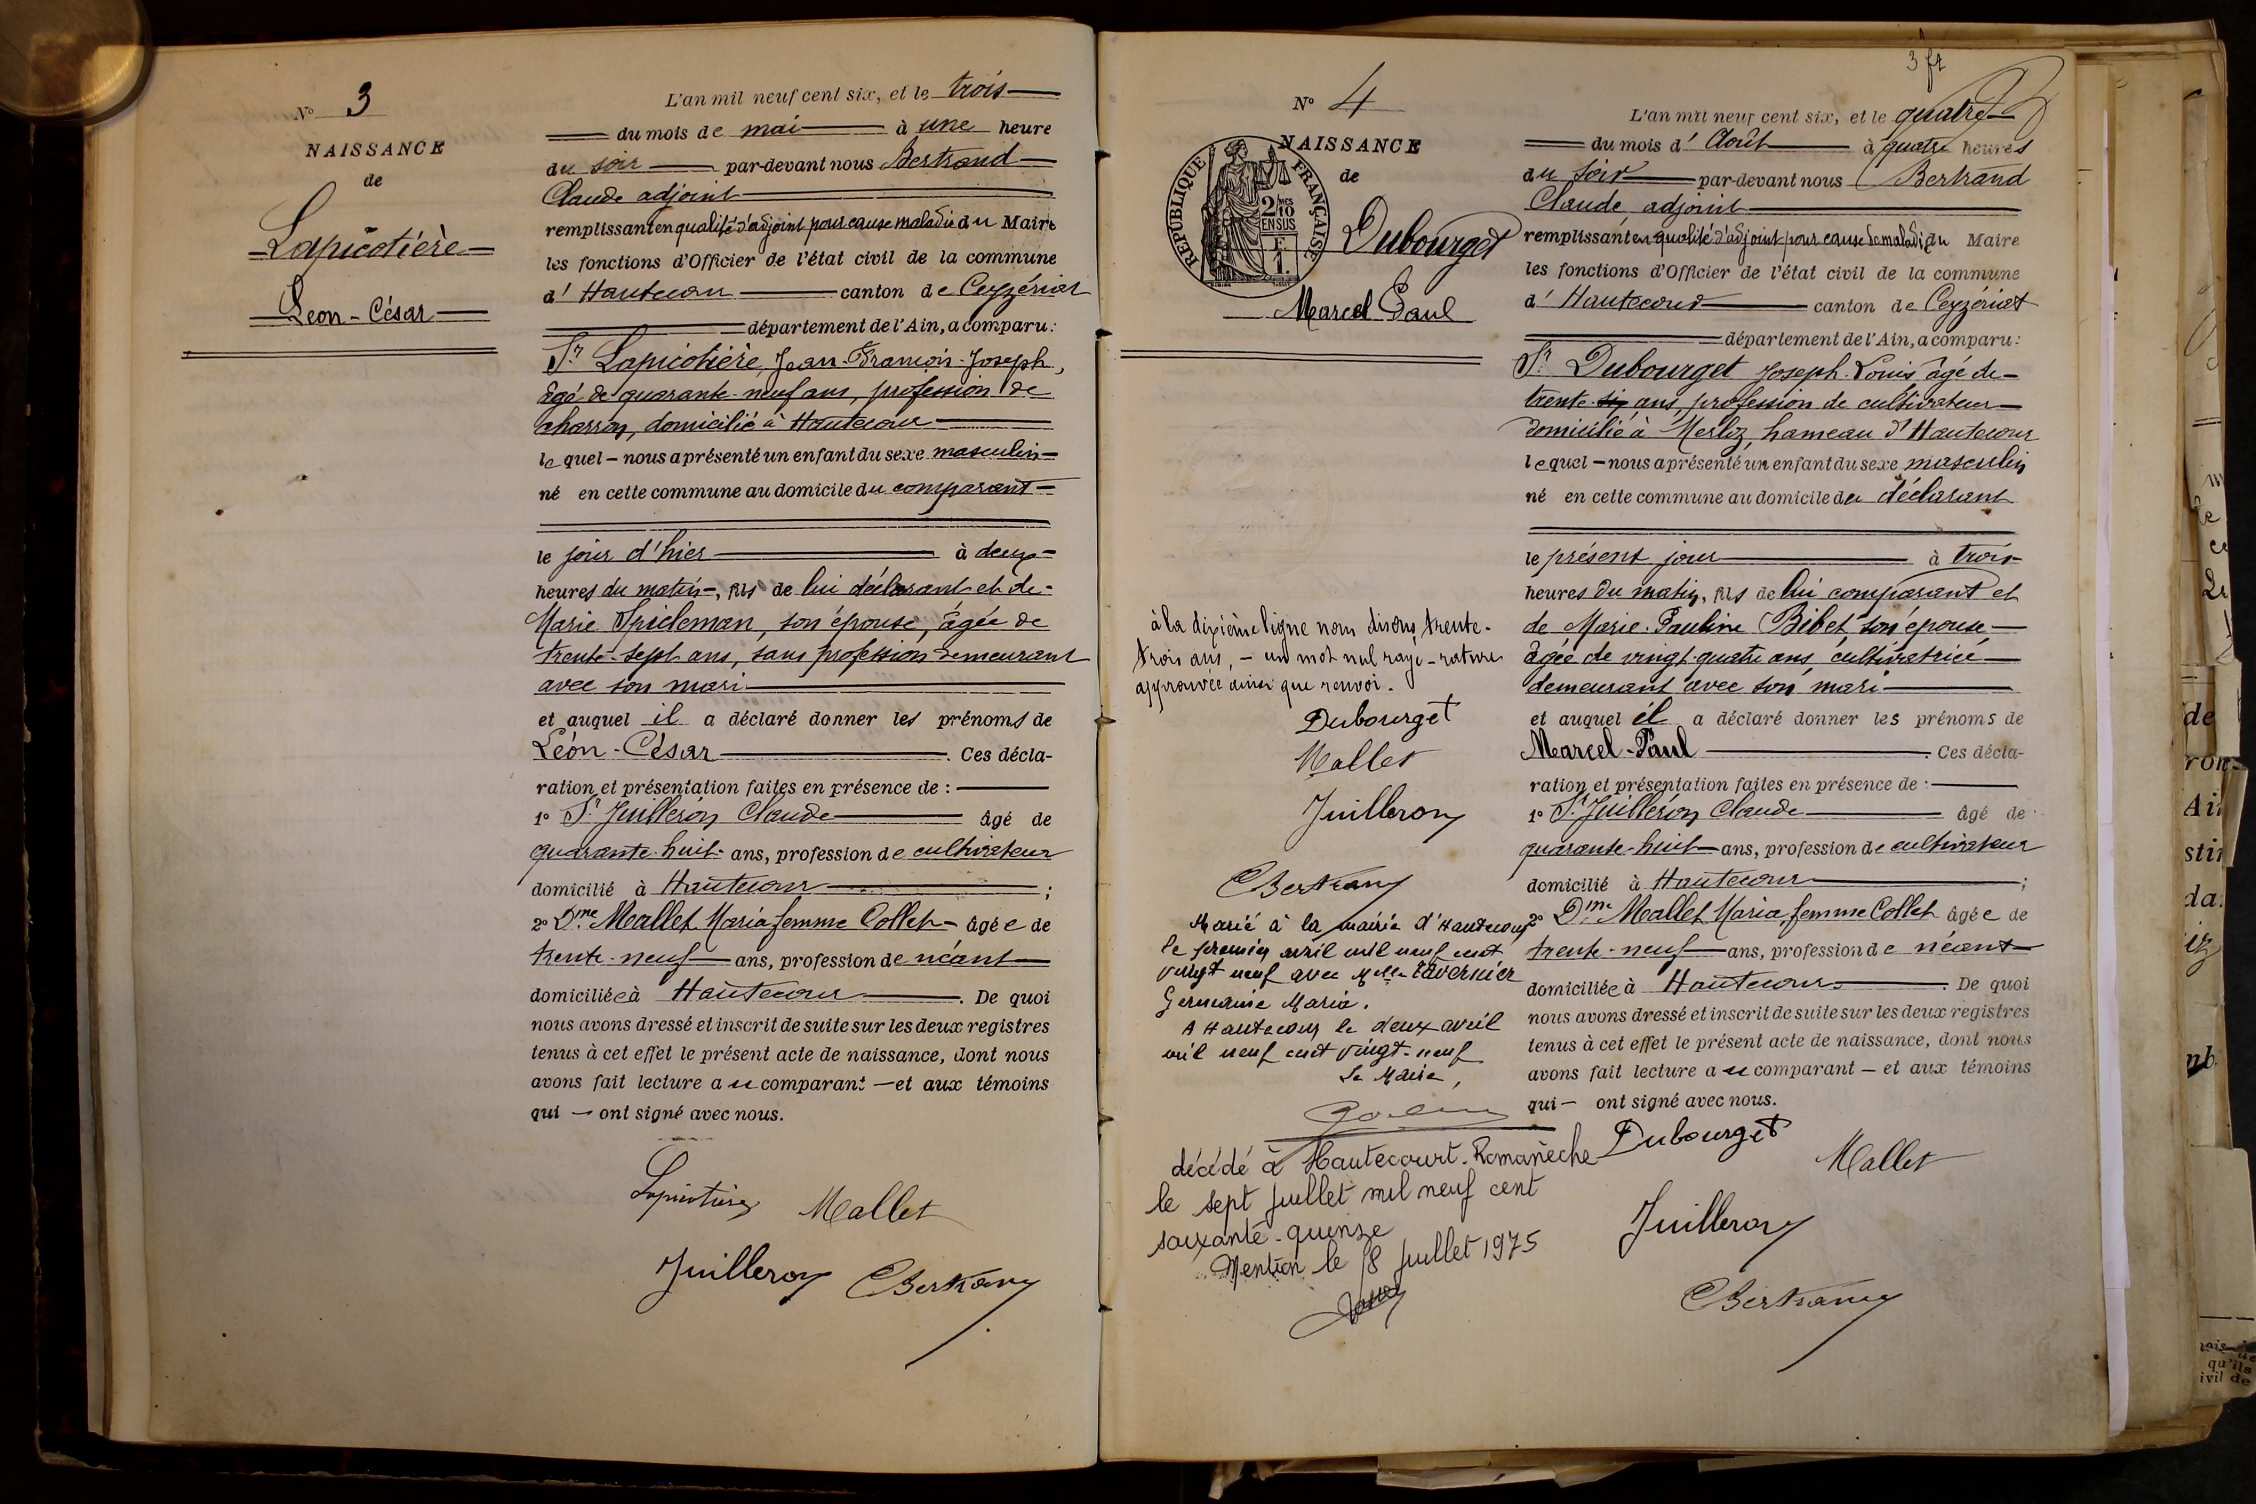 N° 3
NAISSANCE
de
Lapicotière
Léon-César
L'an mil neuf cent six, et le trois
du mois de mai à une heure
du soir par-devant nous Bertrand
Claude adjoint
remplissant en qualité d'adjoint pour cause maladie du Maire
les fonctions d'Officier de l'état civil de la commune
d'Hautecour canton de Ceyzériat
département de l'Ain, a comparu:
Sr Lapicotière, Jean-François-Joseph,
âgé de quarante-neuf ans, profession de
charron, domicilié à Hautecour
lequel - nous a présenté un enfant du sexe masculin
né en cette commune au domicile du comparant
le jour d'hier à deux
heures du matin, fils de lui déclarant et de
Marie Spieleman, son épouse, âgée de
trente-sept ans, sans profession demeurant
avec son mari
et auquel il a déclaré donner les prénoms de
Léon-César. Ces décla-
ration et présentation faites en présence de :
1° Sr Juilleron Claude âgé de
quarante-huit ans, profession de cultivateur
domicilié à Hautecour ;
2° Dme Mallet Maria femme Collet - âgée de
trente-neuf ans, profession de néant
domiciliée à Hautecour. De quoi
nous avons dressé et inscrit de suite sur les deux registres
tenus à cet effet le présent acte de naissance, dont nous
avons fait lecture au comparant - et aux témoins
qui - ont signé avec nous.
Lapicotière Mallet
Juilleron CBertrand
3 fr
N° 4
NAISSANCE
de
RÉPUBLIQUE FRANÇAISE
2/10 MES
EN SUS
1 F.
Dubourget
Marcel Paul
à la dixième ligne nous disons, trente-
trois ans, - un mot nul rayé - rature
approuvée ainsi que renvoi.
Dubourget
Mallet
Juilleron
CBertrand
Marié à la mairie d'Hautecour
le premier avril mil neuf cent
vingt neuf avec Melle Tavernier
Germaine Maria.
A Hautecour le deux avril
mil neuf cent vingt-neuf
Le Maire,
décédé à Hautecourt-Romanèche
le sept juillet mil neuf cent
soixante-quinze
Mention le 18 juillet 1975
L'an mil neuf cent six, et le quatre
du mois d'Août à quatre heures
du soir par-devant nous Bertrand
Claude, adjoint
remplissant en qualité d'adjoint pour cause de maladie du Maire
les fonctions d'Officier de l'état civil de la commune
d'Hautecour canton de Ceyzériat
département de l'Ain, a comparu:
Sr Dubourget Joseph-Louis âgé de
trente-six ans, profession de cultivateur
domicilié à Merloz, hameau d'Hautecour
lequel - nous a présenté un enfant du sexe masculin
né en cette commune au domicile du déclarant
le présent jour à trois
heures du matin, fils de lui comparant et
de Marie-Pauline Bibet son épouse
âgée de vingt-quatre ans, cultivatrice
demeurant avec son mari
et auquel il a déclaré donner les prénoms de
Marcel-Paul. Ces décla-
ration et présentation faites en présence de :
1° Sr Juilleron Claude âgé de
quarante-huit ans, profession de cultivateur
domicilié à Hautecour ;
2° Dme Mallet Maria, femme Collet âgée de
trente-neuf ans, profession de néant
domiciliée à Hautecour. De quoi
nous avons dressé et inscrit de suite sur les deux registres
tenus à cet effet le présent acte de naissance, dont nous
avons fait lecture au comparant - et aux témoins
qui - ont signé avec nous.
Dubourget
Mallet
Juilleron
CBertrand